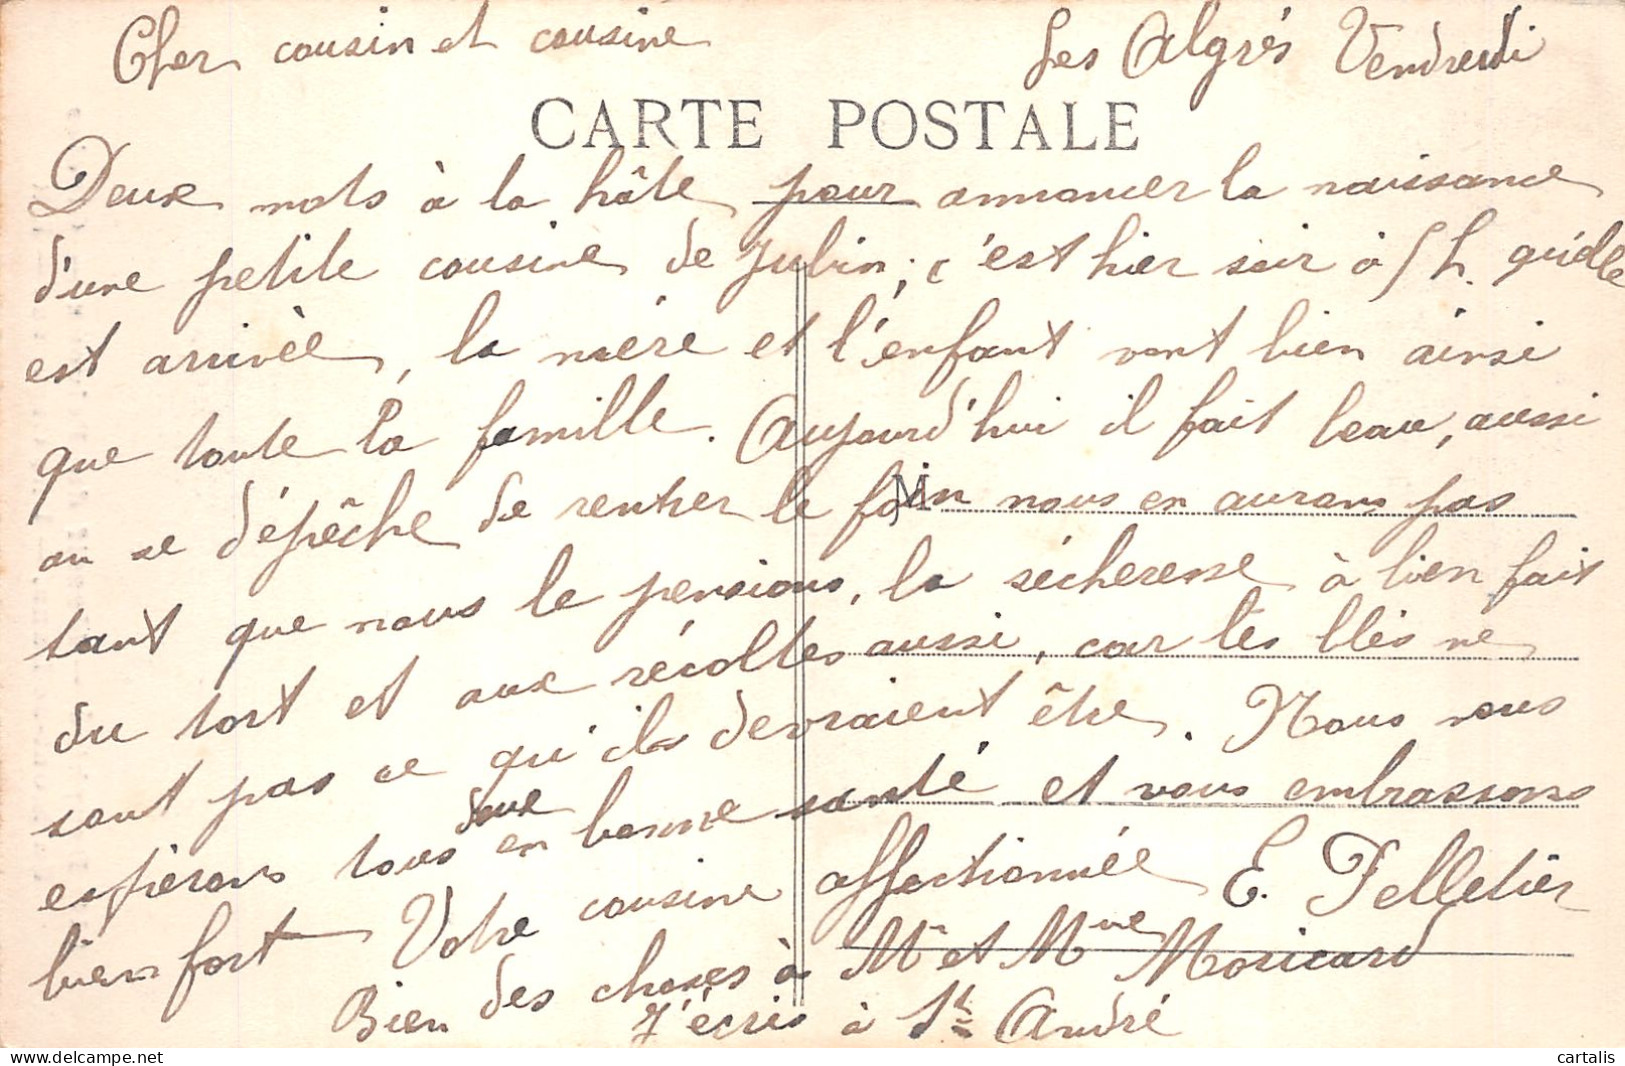 Cher cousin et cousine
Les Algrés Vendredi
CARTE POSTALE
Deux mots à la hâte pour annoncer la naissance
d'une petite cousine de Jubin; c'est hier soir à 5 h. qu'elle
est arrivée, la mère et l'enfant vont bien ainsi
que toute la famille. Aujourd'hui il fait beau, aussi
on se dépêche de rentrer le foin nous en aurons pas
M
tant que nous le pensions, la sécheresse à bien fait
du tort et aux récoltes aussi, car les blés ne
sont pas ce qu'ils devraient être. Nous vous
espérons tous deux en bonne santé et vous embrassons
bien fort Votre cousine affectionnée E. Pelletier
Bien des choses à Mr et Mme Moricard
J'écris à St André
cartalis